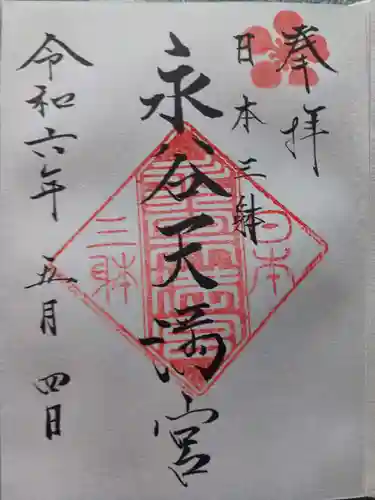 奉拝
日本三躰
永谷天満宮
令和六年 五月 四日
日本
三躰